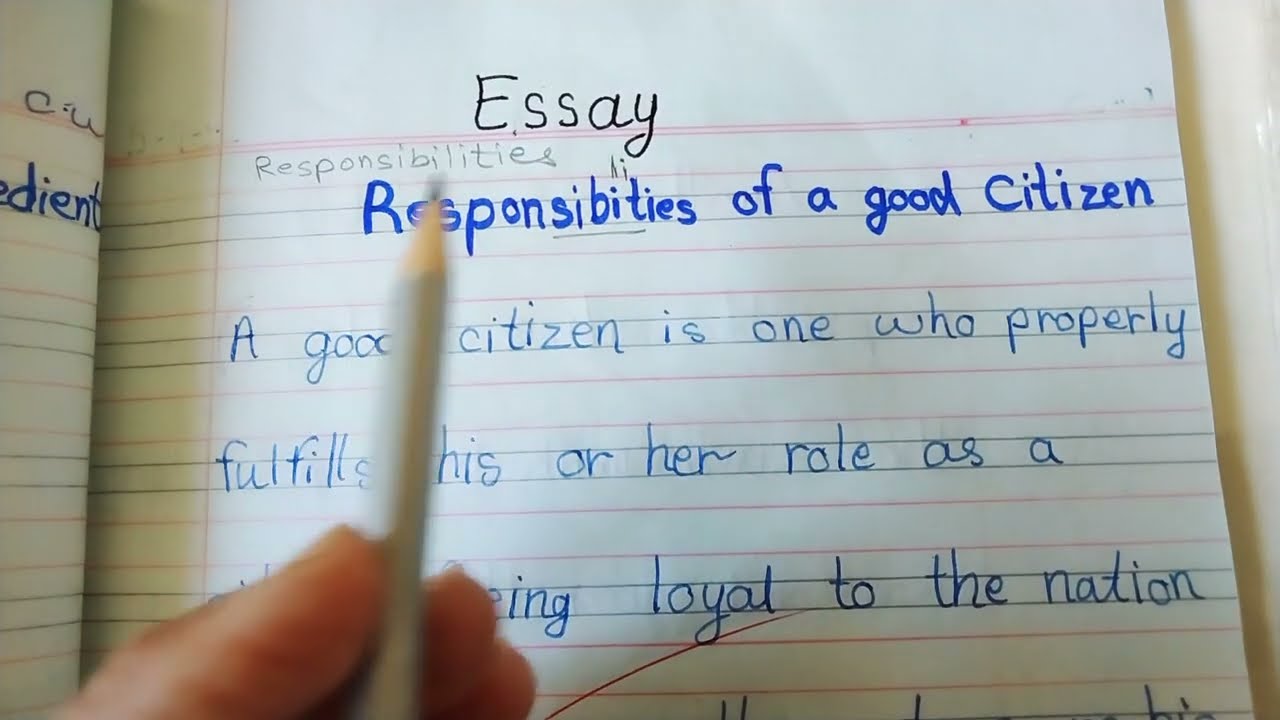 Essay
Responsibilities
li
Responsibities of a good Citizen
edient
A good citizen is one who properly
fulfills his or her role as a
loyal to the nation